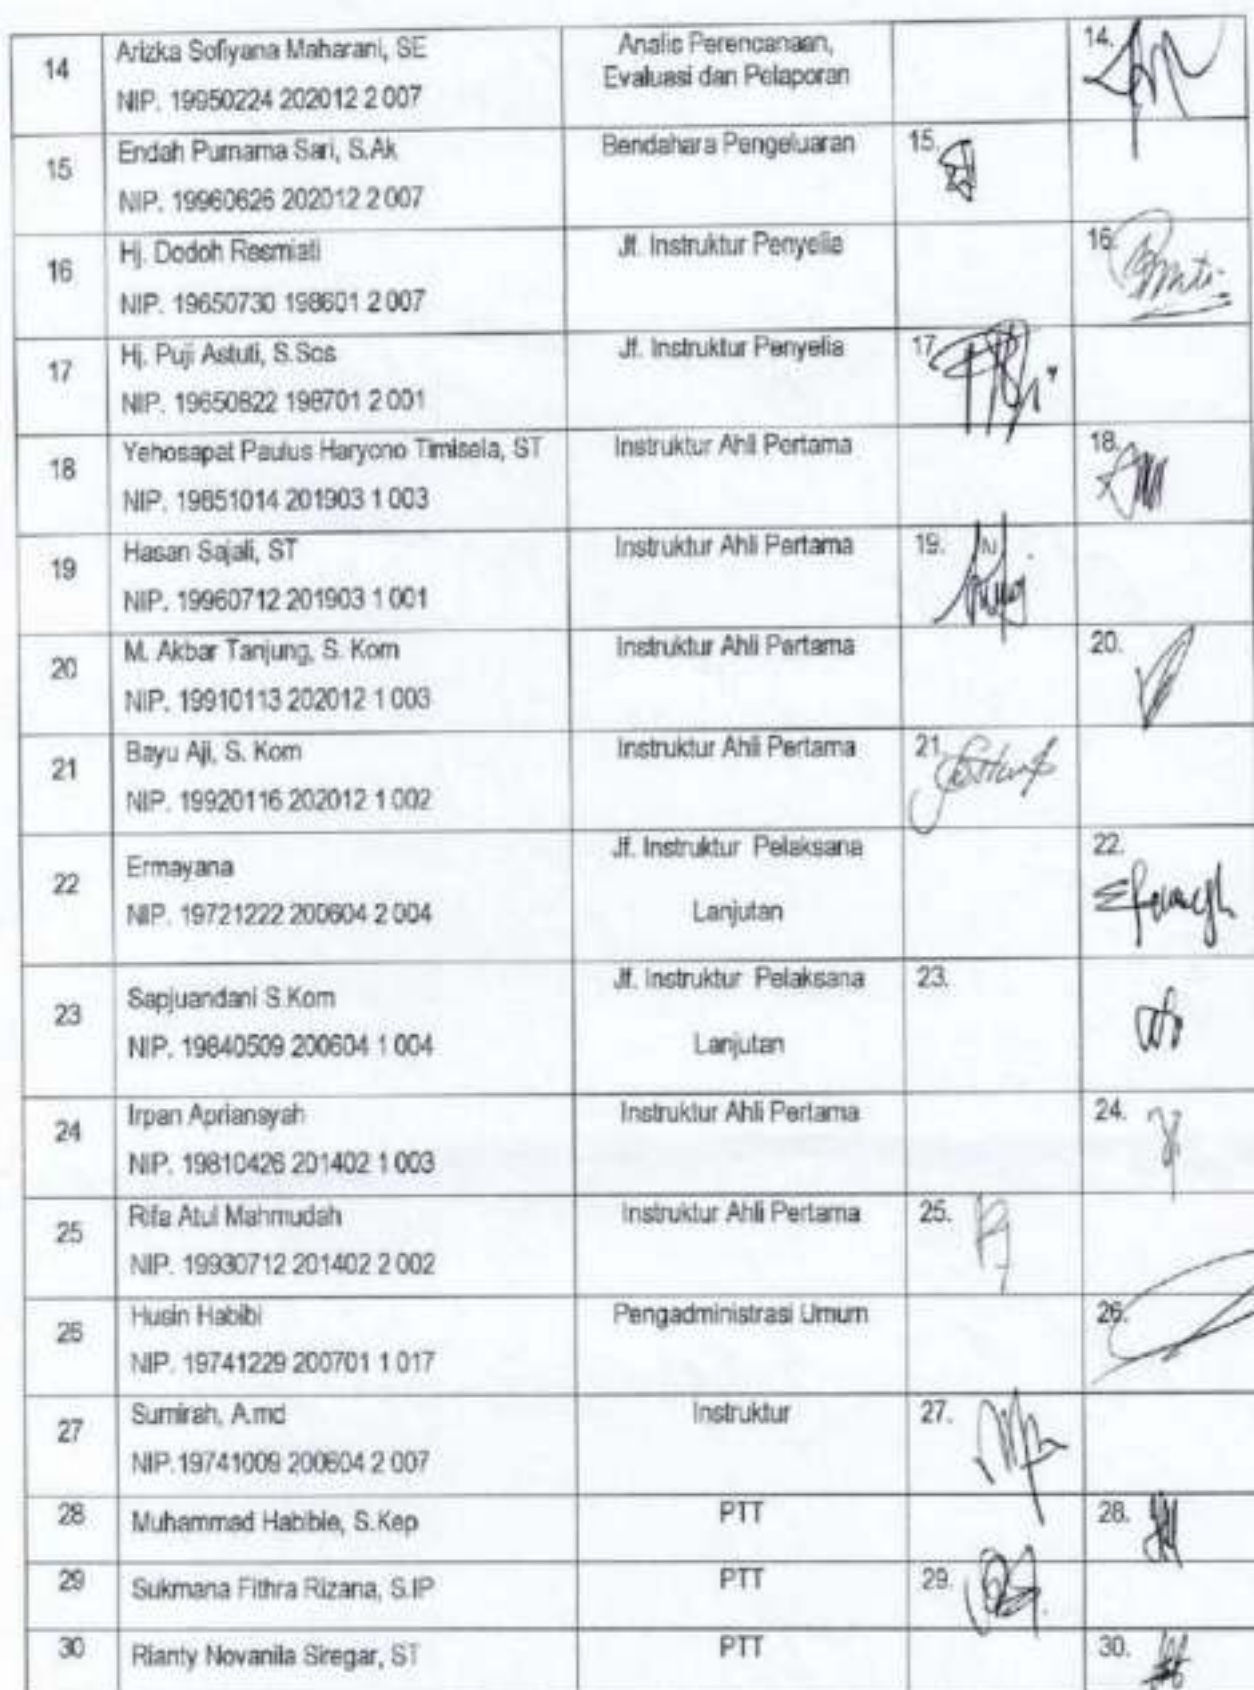 14
Arizka Sofiyana Maharani, SE
NIP. 19950224 202012 2 007
Analis Perencanaan,
Evaluasi dan Pelaporan
14.
15
Endah Purnama Sari, S.Ak
NIP. 19960626 202012 2 007
Bendahara Pengeluaran
15.
16
Hj. Dodoh Resmiati
NIP. 19650730 198601 2 007
Jf. Instruktur Penyelia
16
17
Hj. Puji Astuti, S.Sos
NIP. 19650822 198701 2 001
Jf. Instruktur Penyelia
17.
18
Yehosapat Paulus Haryono Timisela, ST
NIP. 19851014 201903 1 003
Instruktur Ahli Pertama
18.
19
Hasan Sajali, ST
NIP. 19960712 201903 1 001
Instruktur Ahli Pertama
19.
20
M. Akbar Tanjung, S. Kom
NIP. 19910113 202012 1 003
Instruktur Ahli Pertama
20.
21
Bayu Aji, S. Kom
NIP. 19920116 202012 1 002
Instruktur Ahli Pertama
21
22
Ermayana
NIP. 19721222 200604 2 004
Jf. Instruktur Pelaksana
Lanjutan
22.
23
Sapjuandani S.Kom
NIP. 19840509 200604 1 004
Jf. Instruktur Pelaksana
Lanjutan
23.
24
Irpan Apriansyah
NIP. 19810426 201402 1 003
Instruktur Ahli Pertama
24.
25
Rifa Atul Mahmudah
NIP. 19930712 201402 2 002
Instruktur Ahli Pertama
25.
26
Husin Habibi
NIP. 19741229 200701 1 017
Pengadministrasi Umum
26.
27
Sumirah, A.md
NIP.19741009 200604 2 007
Instruktur
27.
28
Muhammad Habibie, S.Kep
PTT
28.
29
Sukmana Fithra Rizana, S.IP
PTT
29.
30
Rianty Novanila Siregar, ST
PTT
30.